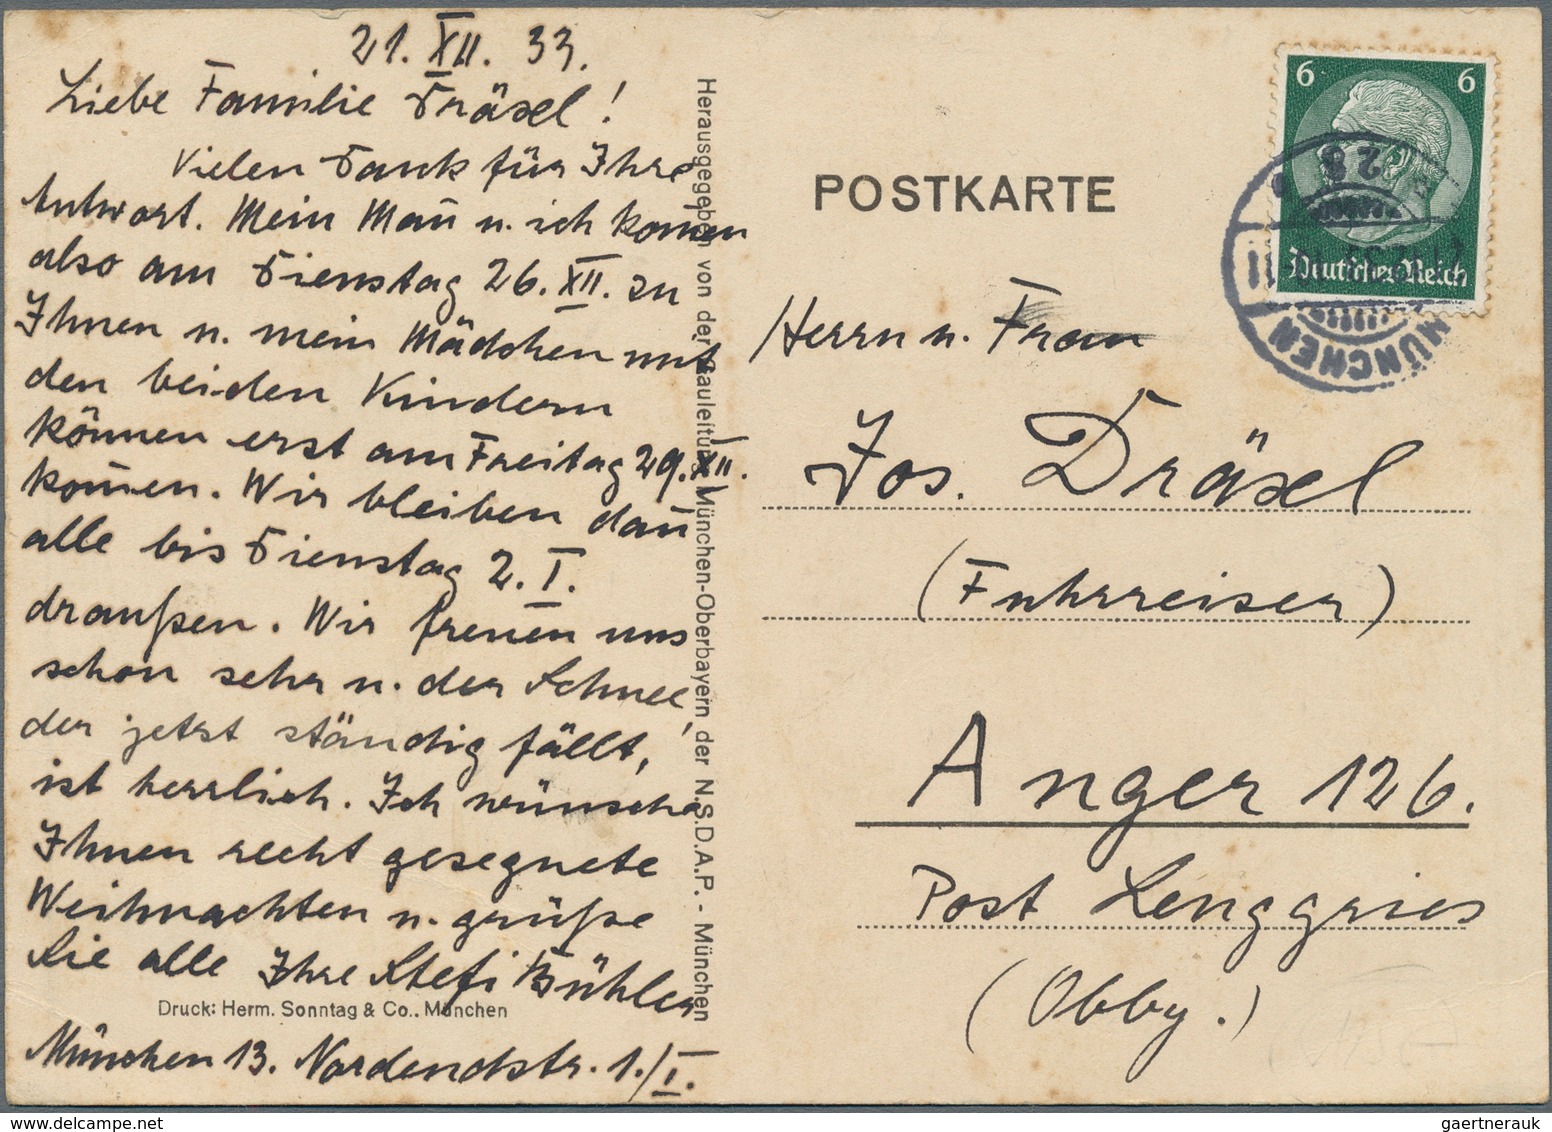 21. XII. 33.
Liebe Familie Dräxl!
Vielen Dank für Ihre
Antwort. Mein Mañ u. ich kom̄en
also am Dienstag 26. XII. zu
Ihnen u. mein Mädchen mit
den beiden Kindern
können erst am Freitag 29. XII.
kom̄en. Wir bleiben dañ
alle bis Dienstag 2. I.
draußen. Wir freuen uns
schon sehr u. der Schnee,
der jetzt ständig fällt,
ist herrlich. Ich wünsche
Ihnen recht gesegnete
Weihnachten u. grüße
Sie alle Ihre Stefi Bühler
Druck: Herm. Sonntag & Co., München
München 13. Nordendstr. 1./I.
Herausgegeben von der Gauleitung München-Oberbayern der N.S.D.A.P. - München
POSTKARTE
6 6
Deutsches Reich
MÜNCHEN
Herrn u. Frau
Jos. Dräxl
(Fuhrreiser)
Anger 126.
Post Lenggries
(Obby.)
gaertnerauk